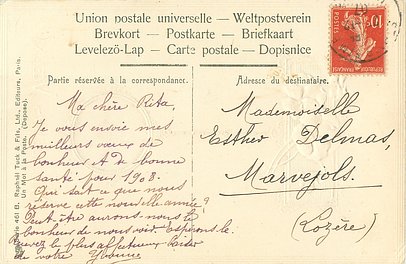 Union postale universelle — Weltpostverein
Brevkort — Postkarte — Briefkaart
Levelező-Lap — Carte postale — Dopisnice
Partie réservée à la correspondance.
Adresse du destinataire.
10
REPUBLIQUE FRANÇAISE
Ma chère Rita,
Je vous envoie mes
meilleurs vœux de
bonheur & de bonne
santé pour 1908.
Qui sait ce que nous
réserve cette nouvelle année ?
Peut être aurons-nous le
bonheur de nous voir. Espérons-le.
Recevez le plus affectueux baiser
de votre Yvonne
Mademoiselle
Esther Delmas,
Marvejols.
(Lozère)
461 B. Raphaël Tuck & Fils, Ltd., Editeurs, Paris.
Un Mot à la Poste. (Déposé).